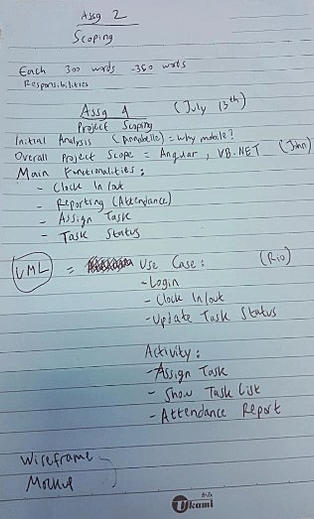 Assg 2
Scoping
Each 300 words - 350 words
Responsibilities
Assg 1 (July 13th)
Project Scoping
Initial Analysis (Annabelle) = Why mobile?
Overall Project Scope = Angular, VB.NET (John)
Main Functionalities:
- Clock In/out
- Reporting (Attendance)
- Assign Task
- Task Status
UML = Use Case: (Rio)
- Login
- Clock In/out
- Update Task Status
Activity:
- Assign Task
- Show Task List
- Attendance Report
Wireframe
Mockup
Ukami